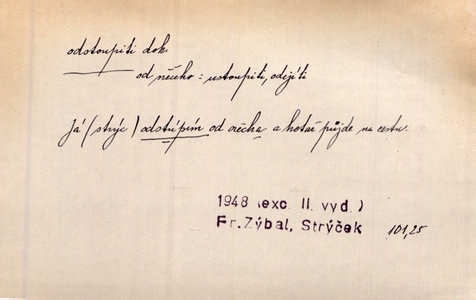 odstoupiti dok.
od něčeho : ustoupiti, odejíti
Já (strýc) odstúpím od ořecha a hotař půjde na cestu.
1948 (exc. II. vyd.)
Fr. Zýbal, Strýček 101,25